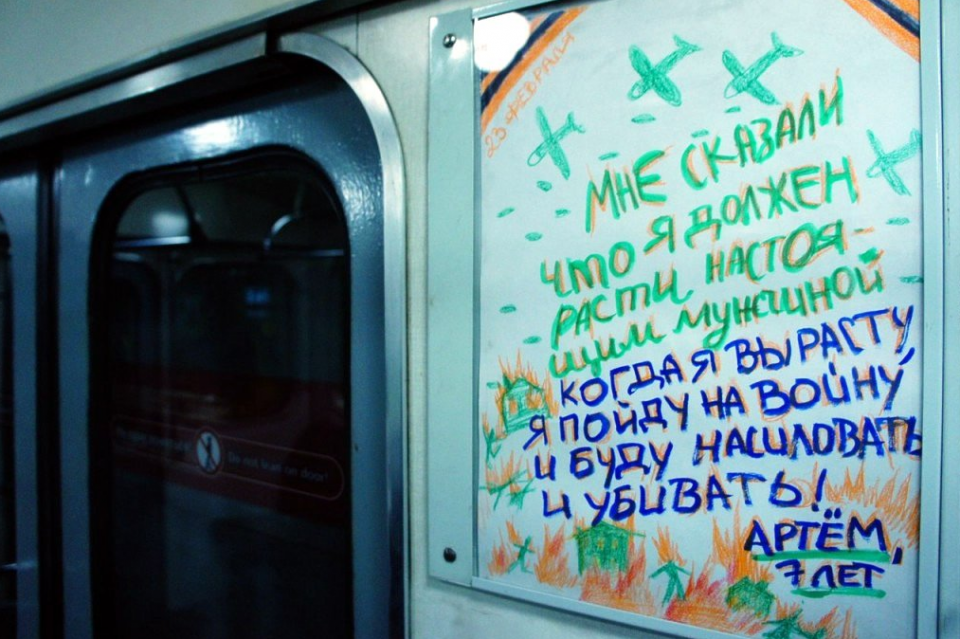 23 ФЕВРАЛЯ
МНЕ СКАЗАЛИ
ЧТО Я ДОЛЖЕН
РАСТИ НАСТОЯ-
ЩИМ МУЖЧИНОЙ
КОГДА Я ВЫРАСТУ,
Я ПОЙДУ НА ВОЙНУ
И БУДУ НАСИЛОВАТЬ
И УБИВАТЬ!
АРТЁМ,
7 ЛЕТ
Do not lean on door